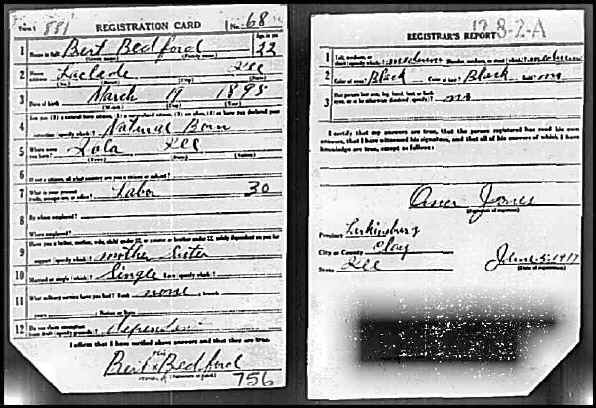 Form 1 881 REGISTRATION CARD No. 68
1 Name in full Bert Bedford Age in yrs. 22
(Given name) (Family name)
2 Home address Laclede Ill
(No.) (Street) (City) (State)
3 Date of birth March 19 1895
(Month) (Day) (Year)
4 Are you (1) a natural-born citizen, (2) a naturalized citizen, (3) an alien, (4) or have you declared your
intention (specify which)? Natural Born
5 Where were you born? Iola Ill
(Town) (State) (Nation)
6 If not a citizen, of what country are you a citizen or subject?
7 What is your present trade, occupation, or office? Labor 30
8 By whom employed?
Where employed?
9 Have you a father, mother, wife, child under 12, or a sister or brother under 12, solely dependent on you for
support (specify which)? mother Sister
10 Married or single (which)? Single Race (specify which)?
11 What military service have you had? Rank none branch
years Nation or State
12 Do you claim exemption from draft (specify grounds)?
I affirm that I have verified above answers and that they are true.
Bert x Bedford
his
mark (Signature or mark)
756
REGISTRAR'S REPORT 12 3-2-A
1 Tall, medium, or short (specify which)? medium Slender, medium, or stout (which)? medium
2 Color of eyes? Black Color of hair? Black Bald? no
3 Has person lost arm, leg, hand, foot, or both
eyes, or is he otherwise disabled (specify)? no
I certify that my answers are true, that the person registered has read his own
answers, that I have witnessed his signature, and that all of his answers of which I have
knowledge are true, except as follows:
Jones
(Signature of registrar)
Precinct
City or County Clay
State Ill
June 5-1917
(Date of registration)